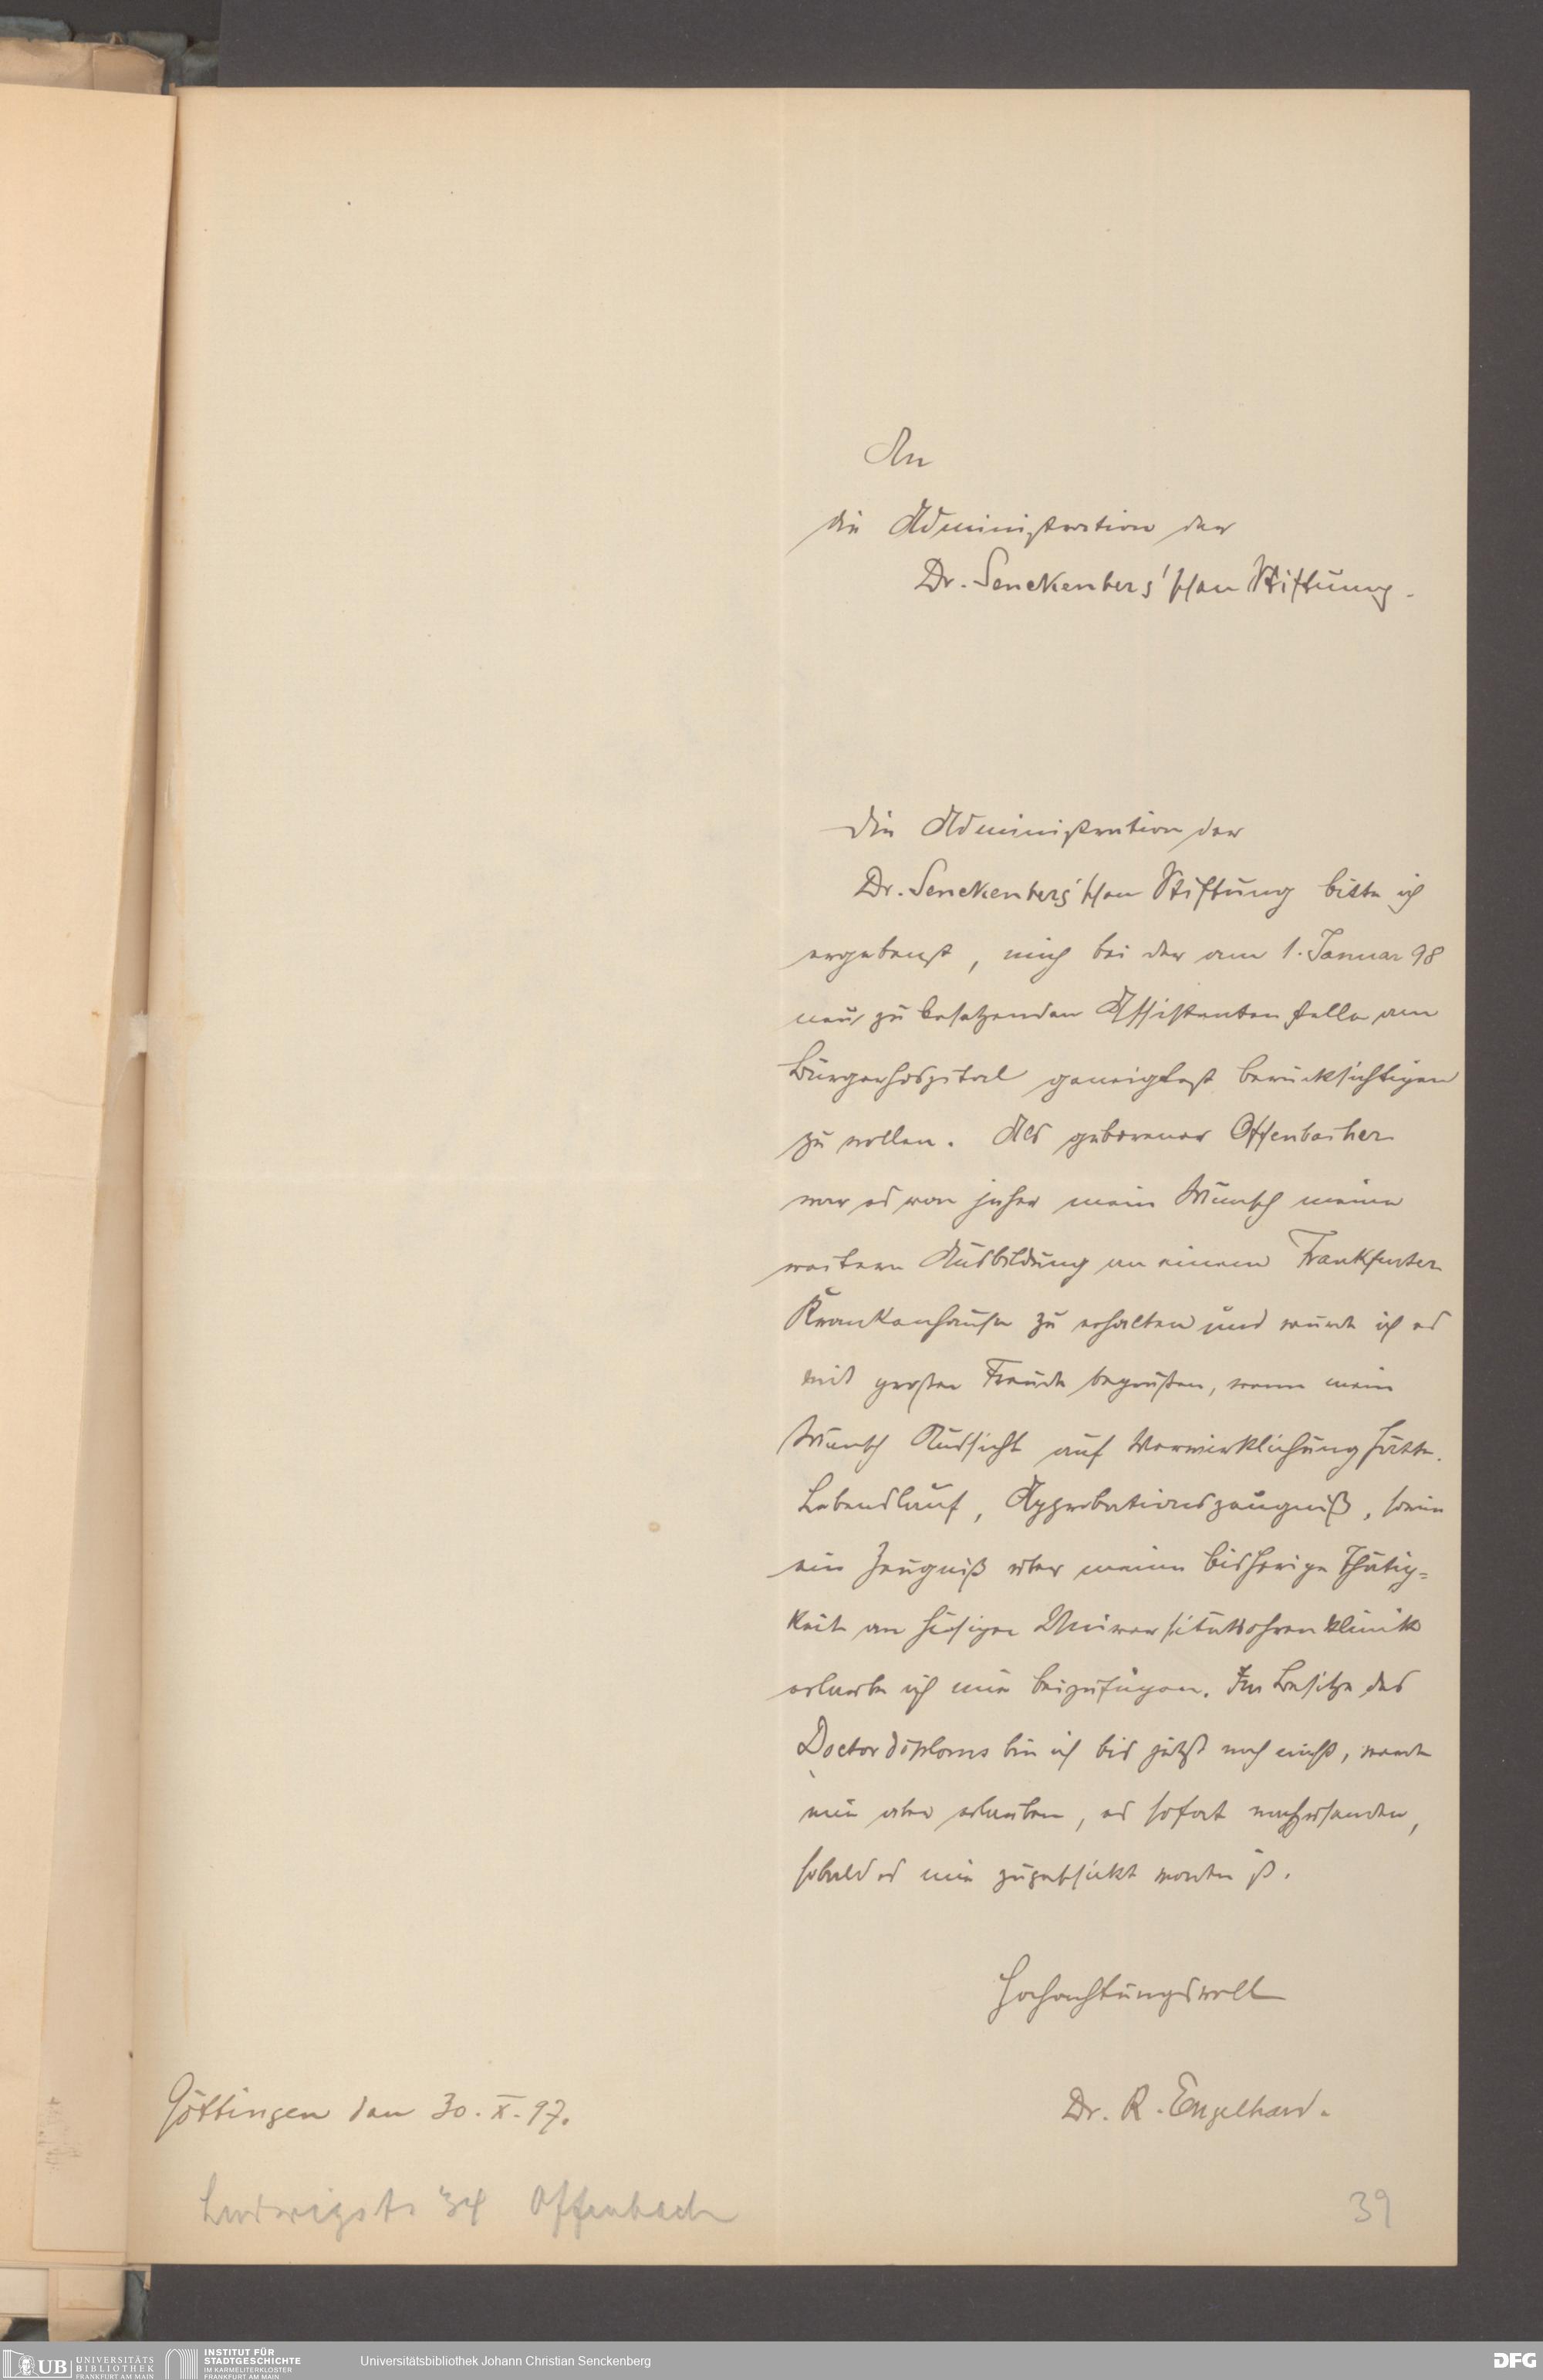 An
die Administration der
Dr. Senckenberg'schen Stiftung.
Die Administration der
Dr. Senckenberg'schen Stiftung bitte ich
ergebenst, mich bei der am 1. Januar 98
neu zu besetzenden Assistentenstelle am
Bürgerhospital geneigtest berücksichtigen
zu wollen. Als geborener Offenbacher
war es von jeher mein Wunsch meine
weitere Ausbildung an einem Frankfurter
Krankenhause zu erhalten und würde ich es
mit großer Freude begrüßen, wenn mein
Wunsch Aussicht auf Verwirklichung hätte.
Lebenslauf, Approbationszeugniß, sowie
ein Zeugniß über meine bisherige Thätig=
keit an hiesiger Universitätsohrenklinik
erlaube ich mir beizufügen. Im Besitze des
Doctordiploms bin ich bis jetzt noch nicht, werde
mir aber erlauben, es sofort nachzusenden,
sobald es mir zugeschickt worden ist.
Hochachtungsvoll
Dr. R. Engelhard.
Göttingen den 30. X. 97.
Ludwigstr 34 Offenbach
39
UB UNIVERSITÄTS
BIBLIOTHEK
FRANKFURT AM MAIN
INSTITUT FÜR
STADTGESCHICHTE
IM KARMELITERKLOSTER
FRANKFURT AM MAIN
Universitätsbibliothek Johann Christian Senckenberg
DFG